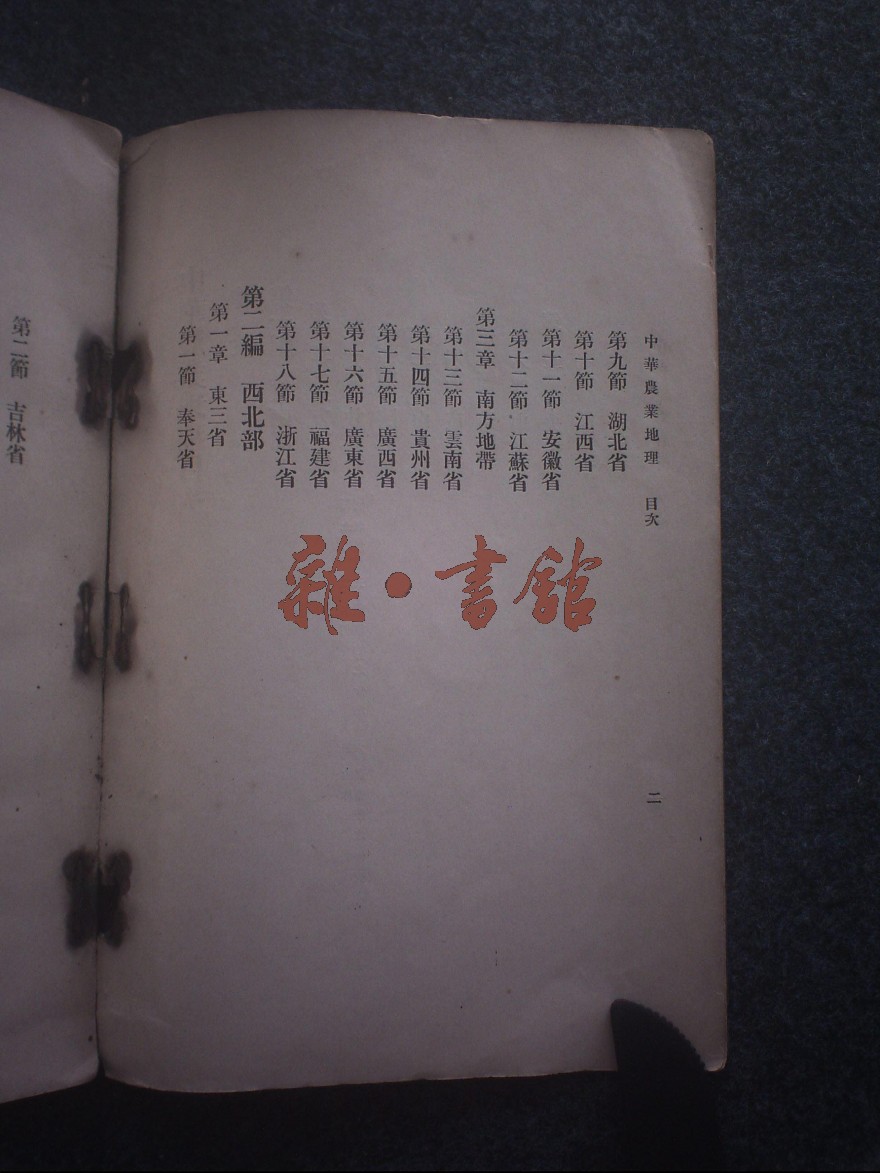 中華農業地理 目次
二
第九節 湖北省
第十節 江西省
第十一節 安徽省
第十二節 江蘇省
第三章 南方地帶
第十三節 雲南省
第十四節 貴州省
第十五節 廣西省
第十六節 廣東省
第十七節 福建省
第十八節 浙江省
第二編 西北部
第一章 東三省
第一節 奉天省
第二節 吉林省
雜·書館